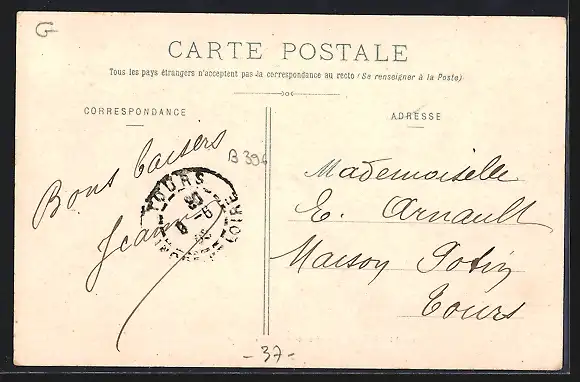 G
CARTE POSTALE
Tous les pays étrangers n'acceptent pas la correspondance au recto (Se renseigner à la Poste)
CORRESPONDANCE
ADRESSE
Bons baisers
Jeanne
B 396
TOURS
LOIRE
Mademoiselle
E. Arnault
Maison Potin
Tours
- 37 -